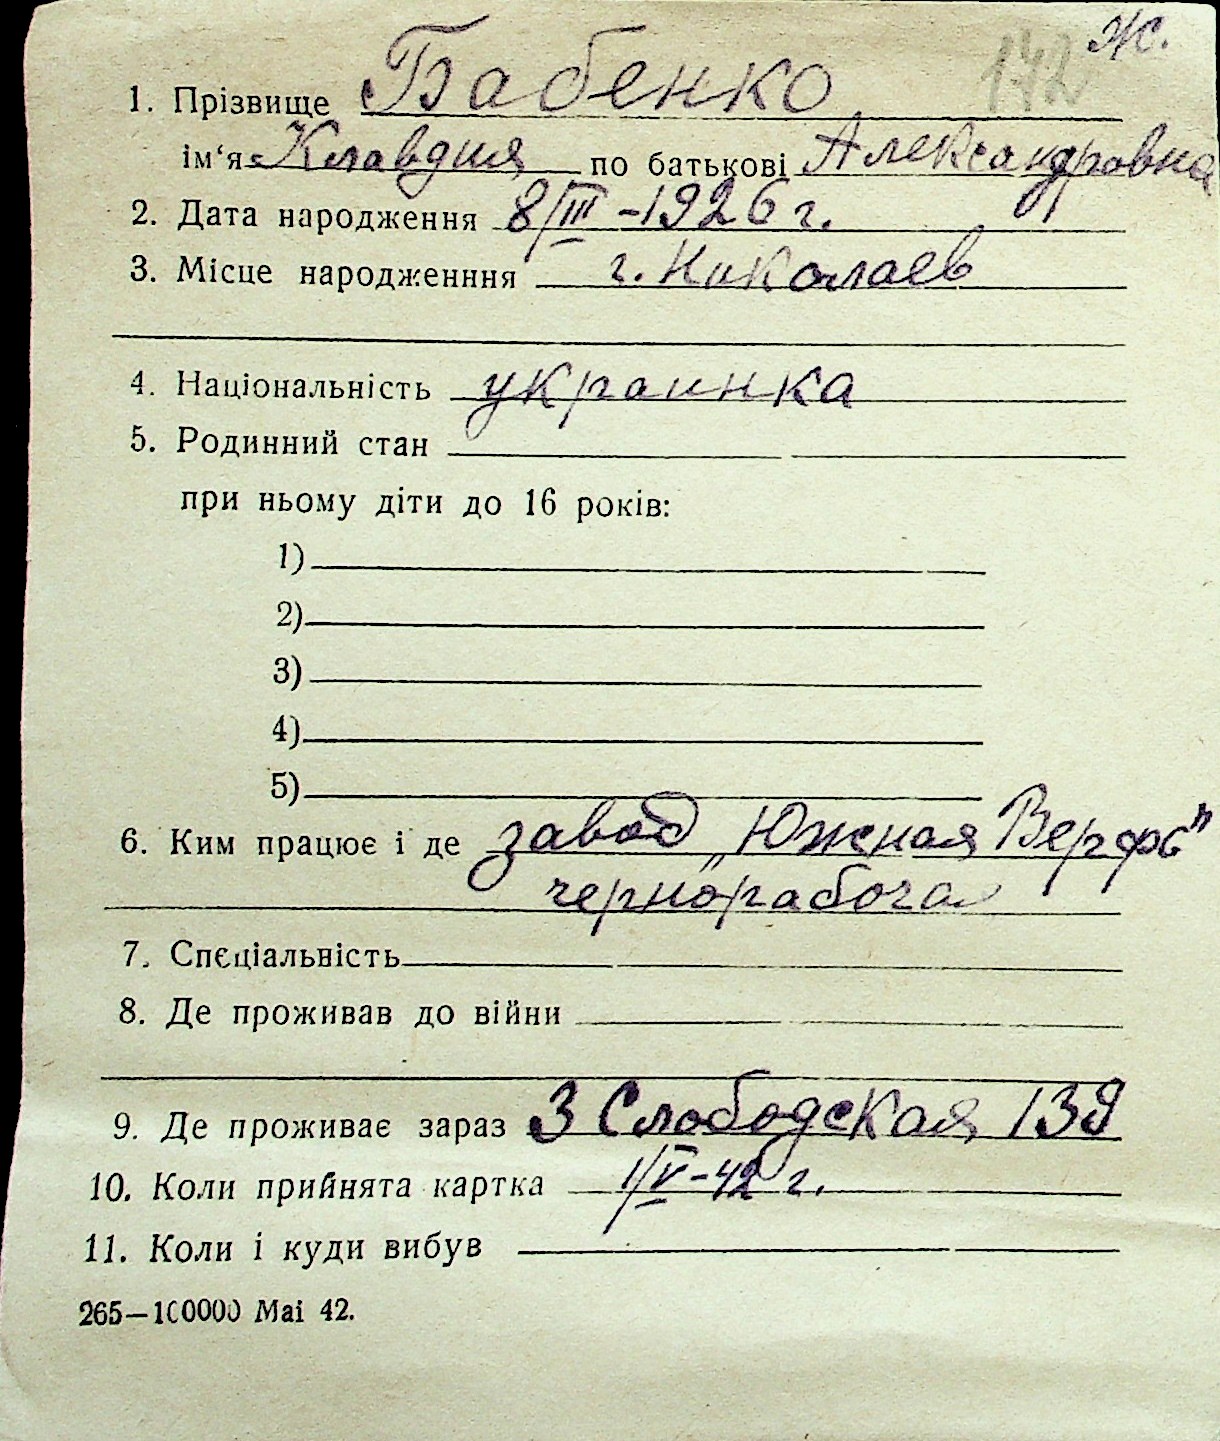 172 Ж.
1. Прізвище Бабенко
ім‘я Клавдия по батькові Александровна
2. Дата народження 8/III-1926 г.
3. Місце народженння г. Николаев
4. Національність украинка
5. Родинний стан
при ньому діти до 16 років:
1)
2)
3)
4)
5)
6. Ким працює і де завод „Южная Верфь"
чернорабочая
7. Спєціальність
8. Де проживав до війни
9. Де проживає зараз 3 Слободская 139
10. Коли прийнята картка 1/V-42 г.
11. Коли і куди вибув
265—100000 Mai 42.